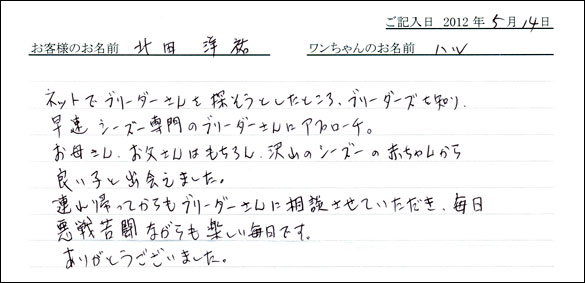 ご記入日 2012年5月14日
お客様のお名前 北田 洋祐 ワンちゃんのお名前 ハル
ネットでブリーダーさんを探そうとしたところ、ブリーダーズを知り、
早速シーズー専門のブリーダーさんにアプローチ。
お母さん、お父さんはもちろん、沢山のシーズーの赤ちゃんから
良い子と出会えました。
連れ帰ってからもブリーダーさんに相談させていただき、毎日
悪戦苦闘ながらも楽しい毎日です。
ありがとうございました。